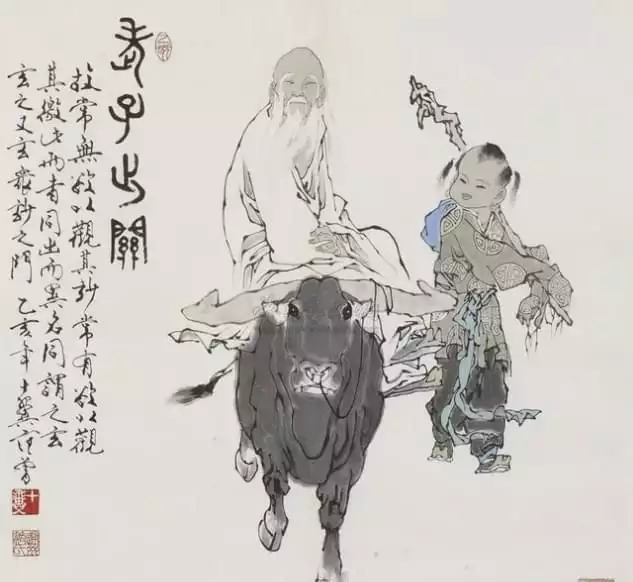 老子出關
故常無欲以觀其玅常有欲以觀
其徼此兩者同出而異名同謂之玄
玄之又玄眾玅之門 乙亥年 十翼范曾
十翼